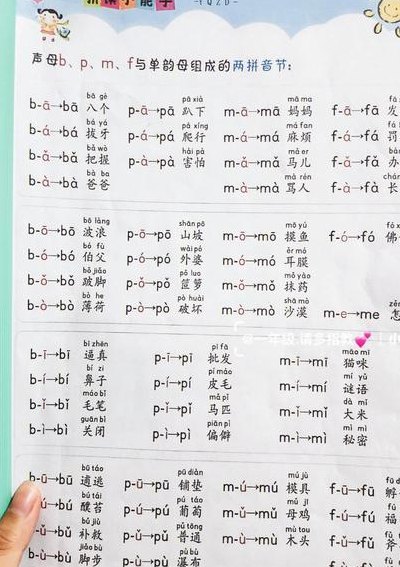 -YQZD-
声母b、p、m、f与单韵母组成的两拼音节:
bā gè pā xià mā ma
b-ā→bā 八个 p-ā→pā 趴下 m-ā→mā 妈妈 f-ā→fā 发
bá yá pá xíng má fan
b-á→bá 拔牙 p-á→pá 爬行 m-á→má 麻烦 f-á→fá 罚
bǎ wò hài pà mǎ er
b-ǎ→bǎ 把握 p-à→pà 害怕 m-ǎ→mǎ 马儿 f-ǎ→fǎ 办
bà ba mà rén
b-à→bà 爸爸 m-à→mà 骂人 f-à→fà 长
bō làng shān pō mō yú
b-ō→bō 波浪 p-ō→pō 山坡 m-ō→mō 摸鱼 f-ó→fó 佛
bó fù wài pó ěr mó
b-ó→bó 伯父 p-ó→pó 外婆 m-ó→mó 耳膜
bǒ jiǎo pǒ luo mǒ yào
b-ǒ→bǒ 跛脚 p-ǒ→pǒ 笸箩 m-ǒ→mǒ 抹药
bò he pò huài shā mò
b-ò→bò 薄荷 p-ò→pò 破坏 m-ò→mò 沙漠 m-e→me 怎
bī zhēn pī fā māo mī
b-ī→bī 逼真 p-ī→pī 批发 m-ī→mī 猫咪
bí zi pí máo mí yǔ
b-í→bí 鼻子 p-í→pí 皮毛 m-í→mí 谜语
máo bǐ mǎ pǐ dà mǐ
b-ǐ→bǐ 毛笔 p-ǐ→pǐ 马匹 m-ǐ→mǐ 大米
guān bì piān pì mì mì
b-ì→bì 关闭 p-ì→pì 偏僻 m-ì→mì 秘密
bū táo pū diàn mú jù
b-ū→bū 逋逃 p-ū→pū 铺垫 m-ú→mú 模具 f-ū→fū 孵
bú tái pú táo mǔ jī
bú→bú 醭苔 p-ú→pú 葡萄 m-ǔ→mǔ 母鸡 f-ú→fú 福
bǔ jiù pǔ tōng mù tou
b-ǔ→bǔ 补救 p-ǔ→pǔ 普通 m-ù→mù 木头 f-ǔ→fǔ 斧
jiǎo bù pù bù
b-ù→bù 脚步 p-ù→pù 瀑布 f-ù→fù